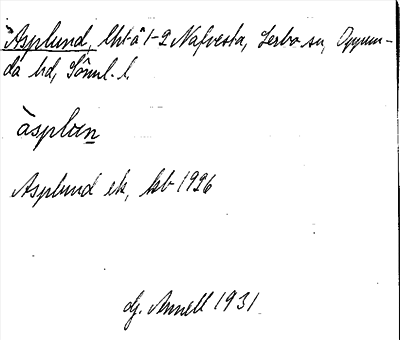 Asplund, lht å 1-2 Nafvesta, Lerbo sn, Oppun-
da hd, Söml. l.
àsplun
Asplund ek, kb 1926
dj. Annell 1931